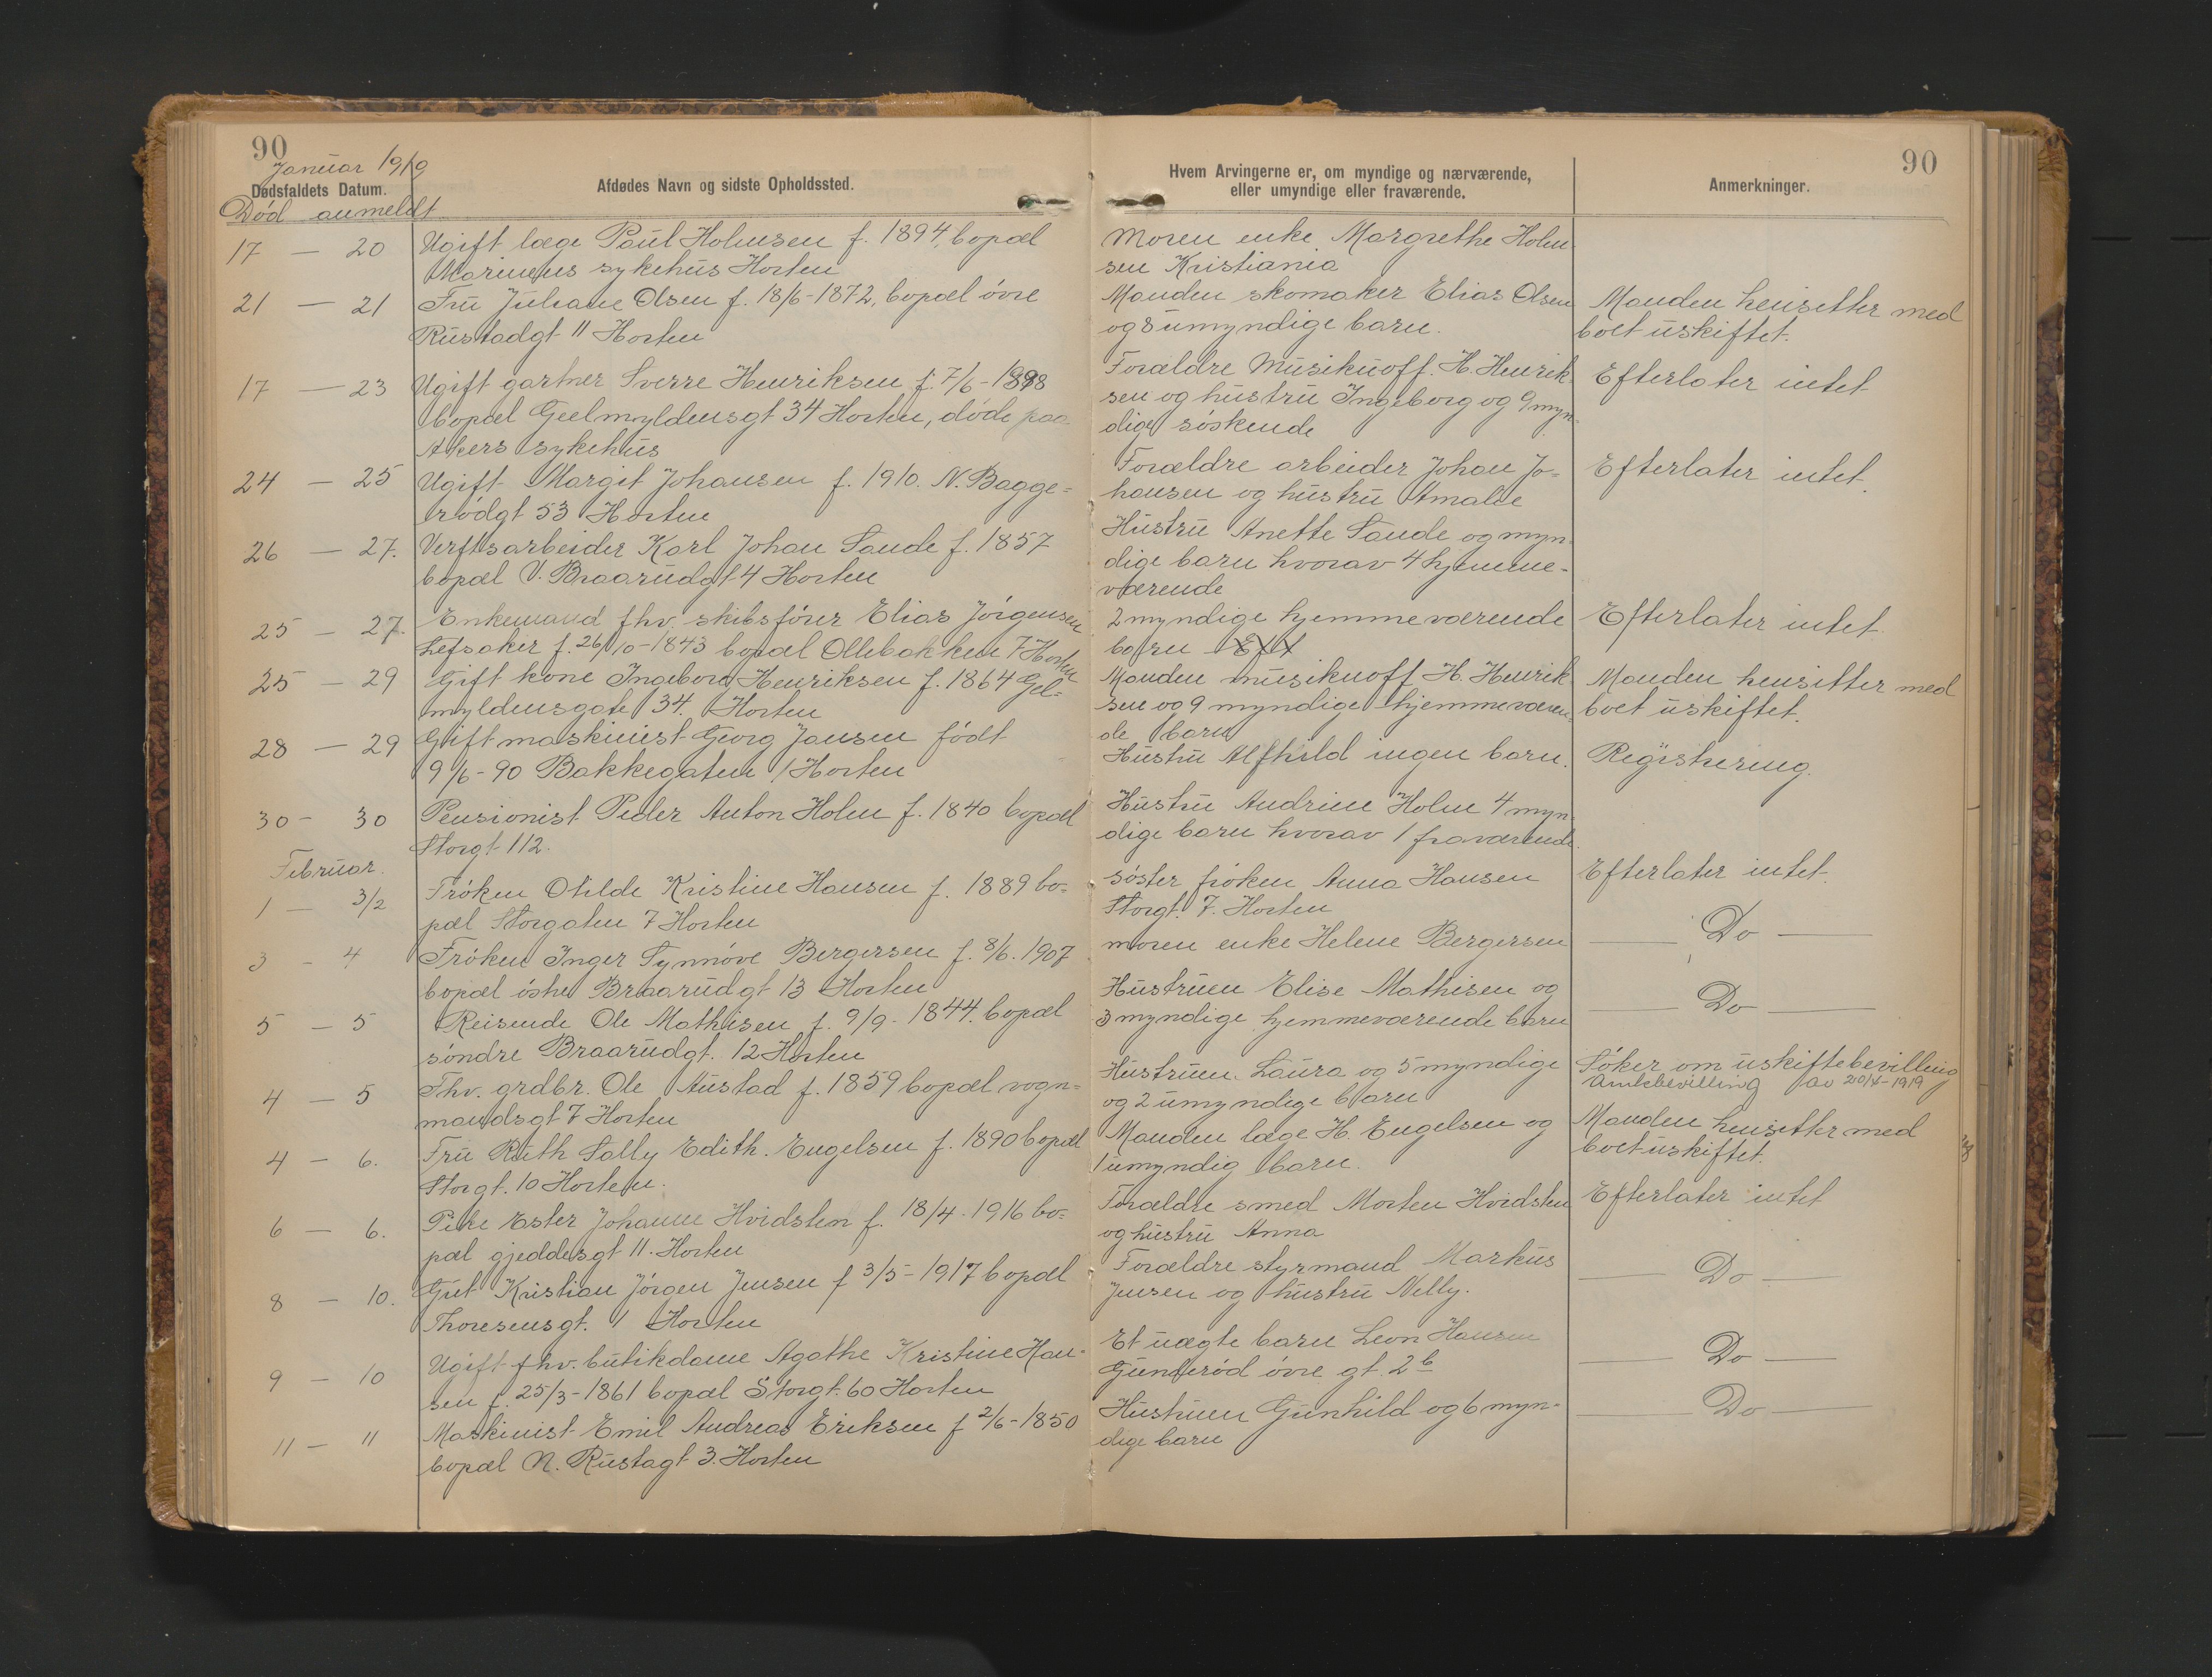 90
Januar 1919
Dødsfaldets Datum.
Afdødes Navn og sidste Opholdssted.
Død anmeldt
17 — 20 Ugift læge Paul Holmsen f. 1894, bopæl
Marinens sykehus Horten
21 — 21 Fru Juliane Olsen f. 18/6-1872, bopæl övre
Rustadgt 11 Horten
17 — 23 Ugift gartner Sverre Henriksen f. 7/6-1898
bopæl Geelmyldensgt 34 Horten, döde paa
Akers sykehus
24 — 25 Ugift Margit Johansen f. 1910. N. Bagge=
rødgt 53 Horten
26 — 27. Verftsarbeider Karl Johan Sande f. 1857
bopæl V. Braarudgt 4 Horten
25 — 27. Enkemand fhv. skibsförer Elias Jörgensen
Lefsaker f. 26/10-1843 bopæl Ollebakken 7 Horten
25 — 29 Gift kone Ingeborg Henriksen f. 1864 Gel-
myldensgate 34. Horten
28 — 29 Gift maskinist Georg Jansen födt
9/6-90 Bakkegaten 1 Horten
30 - 30 Pensionist Peder Anton Holm f. 1840 bopæl
Storgt 112.
Februar.
1 — 3/2 Fröken Otilde Kristine Hansen f. 1889 bo=
pæl Storgaten 7 Horten
3 - 4 Fröken Inger Synnöve Bergersen f. 8/6. 1907
bopæl östre Braarudgt 13 Horten
5 — 5 Reisende Ole Mathisen f. 9/9-1844. bopæl
söndre Braarudgt. 12 Horten
4 — 5 Fhv. grdbr. Ole Austad f. 1859 bopæl vogn=
mandsgt 7 Horten
4 — 6. Fru Ruth Sally Edith. Engelsen f. 1890 bopæl
Storgt. 10 Horten.
6 — 6. Pike Ester Johanne Hvidsten f. 18/4-1916 bo=
pæl gjeddesgt 11. Horten
8 — 10. Gut Kristian Jörgen Jensen f 3/5-1917 bopæl
Thoresensgt. 1 Horten
9 — 10 Ugift fhv. butikdame Agathe Kristine Han-
sen f. 25/3-1861 bopæl Storgt. 60 Horten
11 — 11 Maskinist Emil Andreas Eriksen f 2/6-1850
bopæl N. Rustagt 3. Horten
90
Hvem Arvingerne er, om myndige og nærværende,
eller umyndige eller fraværende.
Anmerkninger.
Moren enke Margrethe Holm
sen Kristiania
Manden skomaker Elias Olsen
og 8 umyndige barn.
Manden hensitter med
boet uskiftet.
Forældre Musikuoff. H. Henrik
sen og hustru Ingeborg og 9 myn=
dige söskende
Efterlater intet
Forældre arbeider Johan Jo=
hansen og hustru Amalie
Efterlater intet.
Hustru Anette Sande og myn
dige barn hvorav 4 hjemme-
værende
2 myndige hjemmeværende
barn
Efterlater intet.
Manden musikuoff H. Henrik
sen og 9 myndige hjemmeværen
de barn
Manden hensitter med
boet uskiftet.
Hustru Alfhild ingen barn.
Registrering.
Hustru Andrine Holm 4 myn
dige barn hvorav 1 fraværende.
söster fröken Anna Hansen
Storgt. 7. Horten
Efterlater intet.
moren enke Helene Bergersen
— Do —
Hustruen Elise Mathisen og
3 myndige hjemmeværende barn
— Do —
Hustruen. Laura og 5 myndige
og 2 umyndige barn
Söker om uskiftebevilling
Amtsbevilling av 20/2-1919
Manden læge H. Engelsen og
1 umyndig barn.
Manden hensitter med
boet uskiftet.
Forældre smed Morten Hvidsten
og hustru Anna
Efterlater intet
Forældre styrmand Markus
Jensen og hustru Nelly.
— Do —
Et uægte barn Leon Hansen
Gunnerød övre gt. 2b
— Do —
Hustruen Gunhild og 6 myn-
dige barn
— Do —